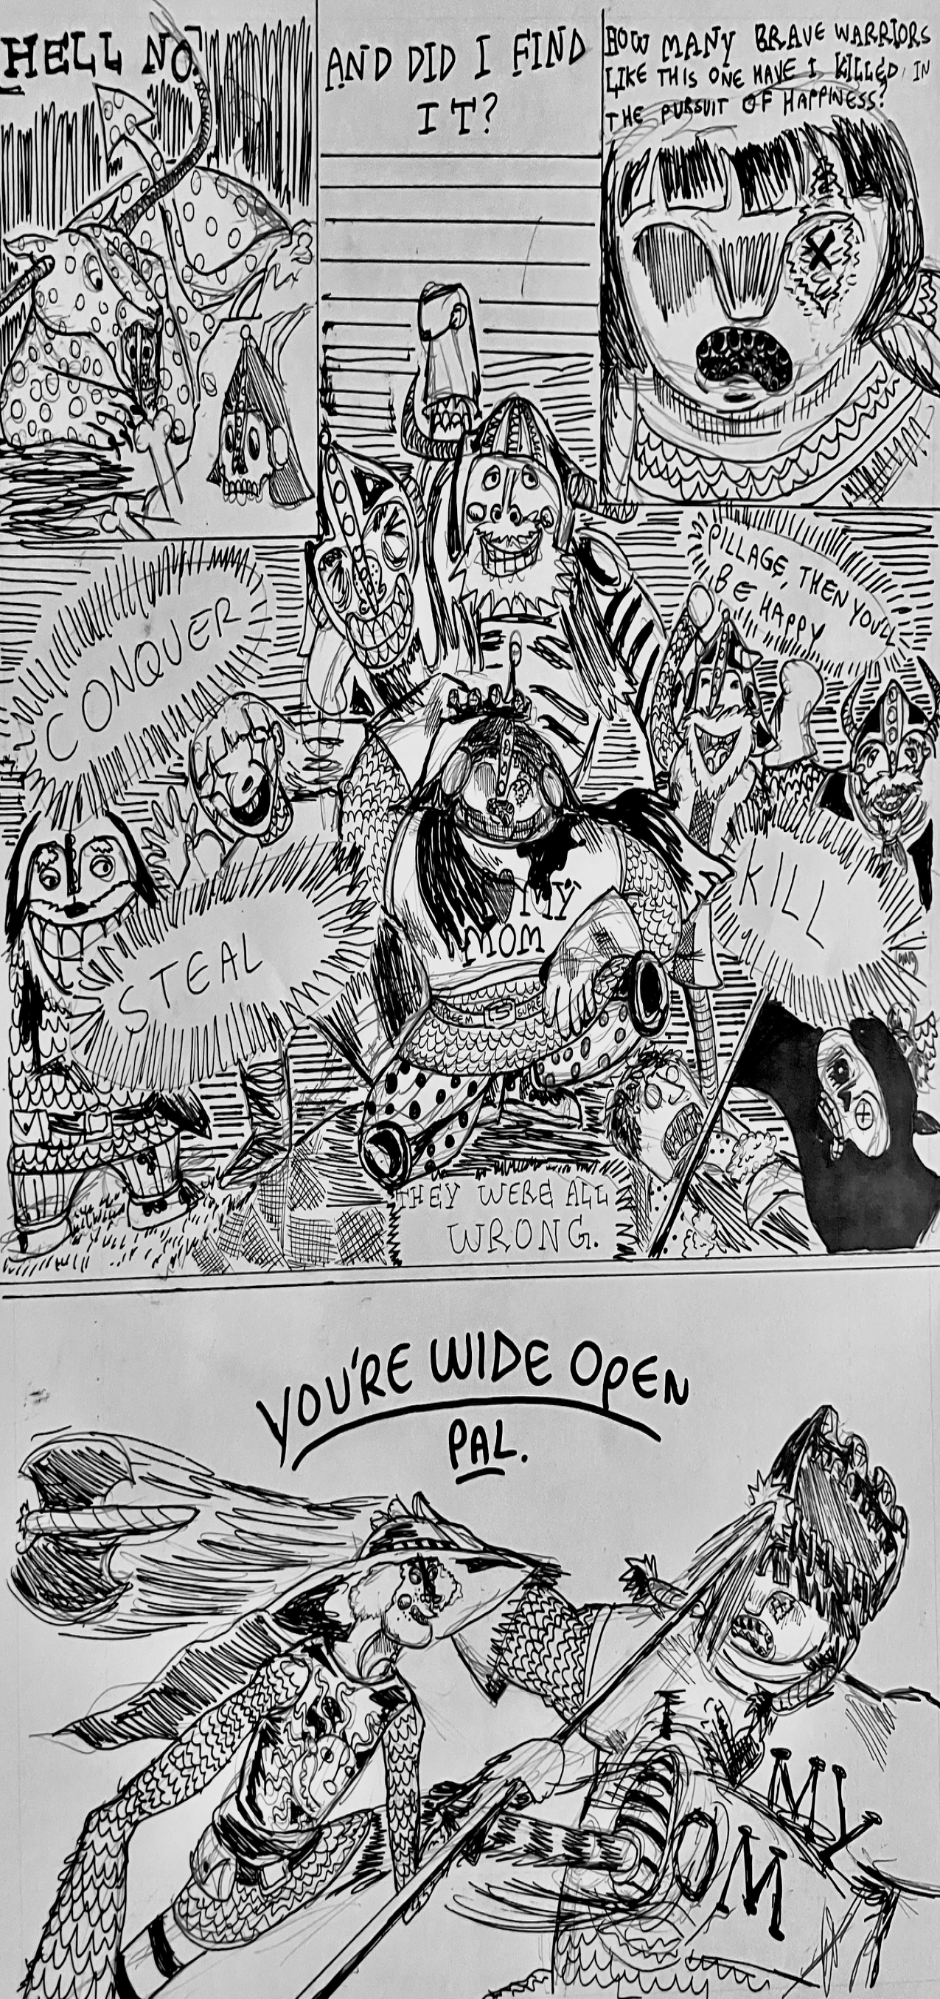 HELL NO
AND DID I FIND
IT?
HOW MANY BRAVE WARRIORS
LIKE THIS ONE HAVE I KILLED IN
THE PURSUIT OF HAPPINESS?
CONQUER
PILLAGE, THEN YOU'LL
BE HAPPY
STEAL
KILL
MY
MOM
THEY WERE ALL
WRONG.
YOU'RE WIDE OPEN
PAL.
I
MY
MOM